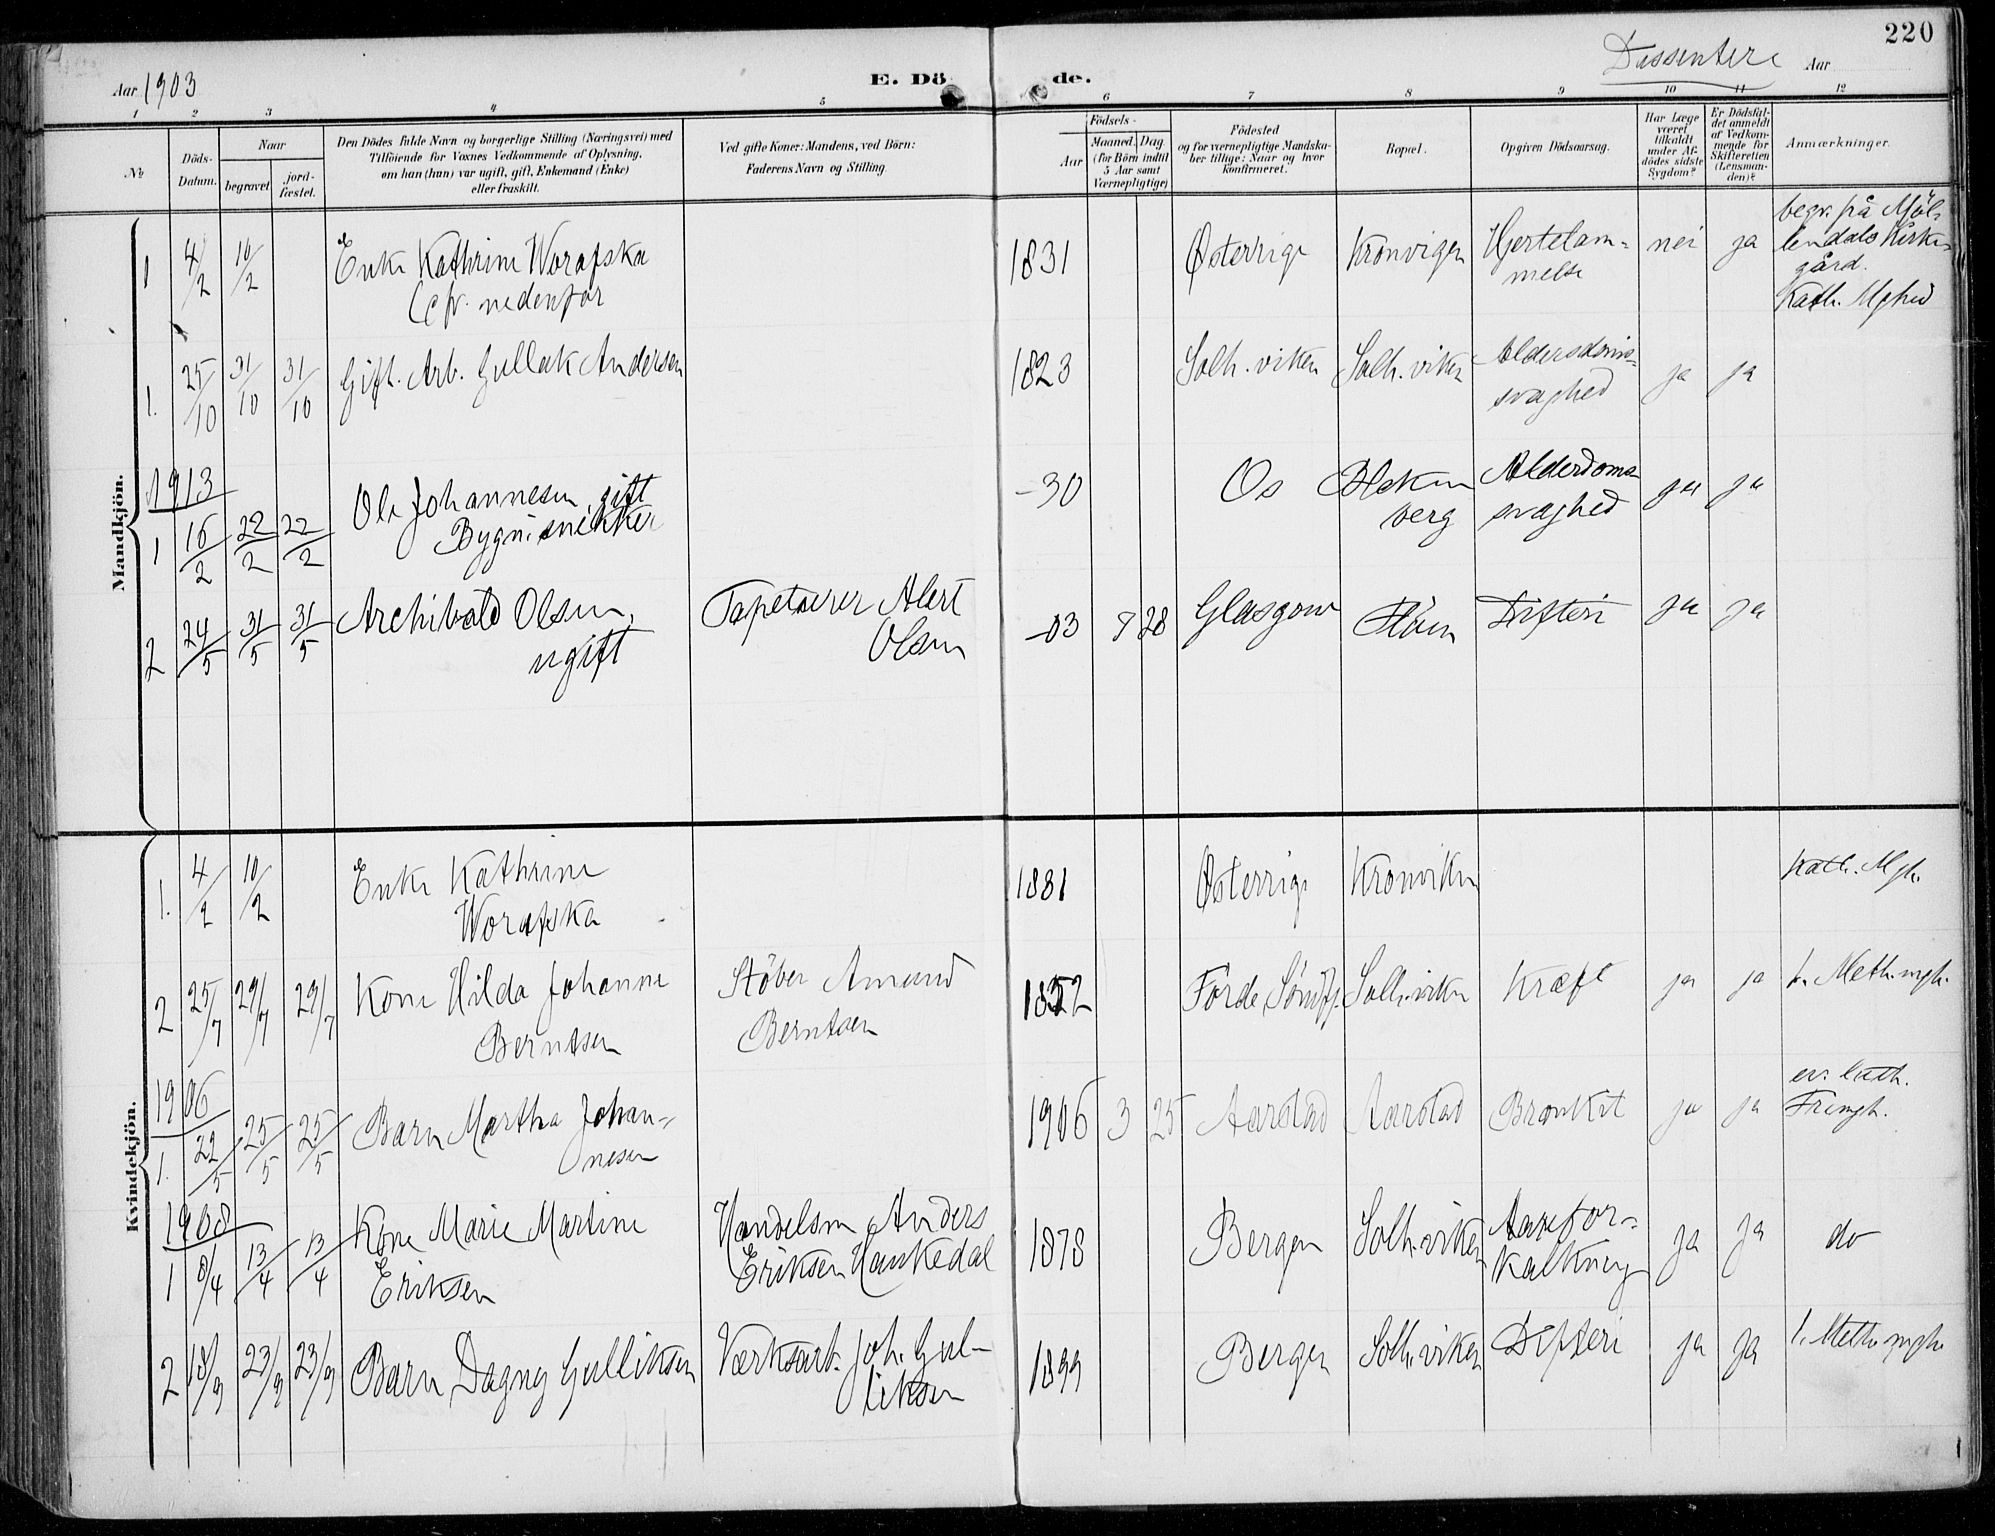 220
Aar 1903
E. Dö de.
Dissentere Aar
1 2 3 4 5 6 7 8 9 10 11 12
№
Döds-
Datum.
Naar
begravet.
jord-
fæstet.
Den Dödes fulde Navn og borgerlige Stilling (Næringsvei) med
Tilföiende for Voxnes Vedkommende af Oplysning,
om han (hun) var ugift, gift, Enkemand (Enke)
eller fraskilt.
Ved gifte Koner: Mandens, ved Börn:
Faderens Navn og Stilling.
Födsels-
Aar
Maaned. Dag.
(for Börn indtil
5 Aar samt
Værnepligtige)
Födested
og for værnepligtige Mandska-
ber tillige: Naar og hvor
konfirmeret.
Bopæl.
Opgiven Dödsaarsag.
Har Læge
været
tilkaldt
under Af-
dödes sidste
Sygdom?
Er Dödsfal-
det anmeldt
af Vedkom-
mende for
Skifteretten
(Lensman-
den)?
Anmærkninger.
Mandkjön.
1 4/2 10/2 Enke Kathrine Worafska 1831 Østerrige Kronvigen Hjertelam- nei ja begr. på Möl-
(cfr. nedenfor melse lendals Kirke-
gård.
Kath. Mghed
1. 25/10 31/10 31/10 Gift. Arb. Gullak Andersen 1823 Solh. viken Solh. viken Aldersdoms- ja ja
svaghed
1913
1 16/2 22/2 22/2 Ole Johannesen, gift -30 Os Alderdoms- ja ja
Bygn. snekker verg svaghed
2 24/5 31/5 31/5 Archibald Olsen, Tapetserer Alert -03 8 28 Glasgow Difteri ja ja
ugift Olsen
Kvindekjön.
1. 4/2 10/2 Enke Kathrine 1831 Østerrige Kronviken Kath. Mgh.
Worafska
2 25/7 29/7 29/7 Kone Hilda Johanne Stöber Amund 1852 Förde Söndfj. Solh. viken Kræft ja ja t. Meth. mgh.
Berntsen Berntsen
1906
1. 22/5 25/5 25/5 Barn Martha Johan- 1906 3 25 Aarstad Aarstad Bronkit ja ja ev. luth.
nesen Frimgh.
1908
1 8/4 13/4 13/4 Kone Marie Martine Handelsm Anders 1878 Bergen Solh. viken Aarefor- ja ja do
Eriksen Eriksen Haukedal kalkning
2 18/9 23/9 23/9 Barn Dagny Gulliksen Værksarb. Joh. Gul- 1899 Bergen Solh. viken Difteri ja ja t. Meth. mgh.
liksen